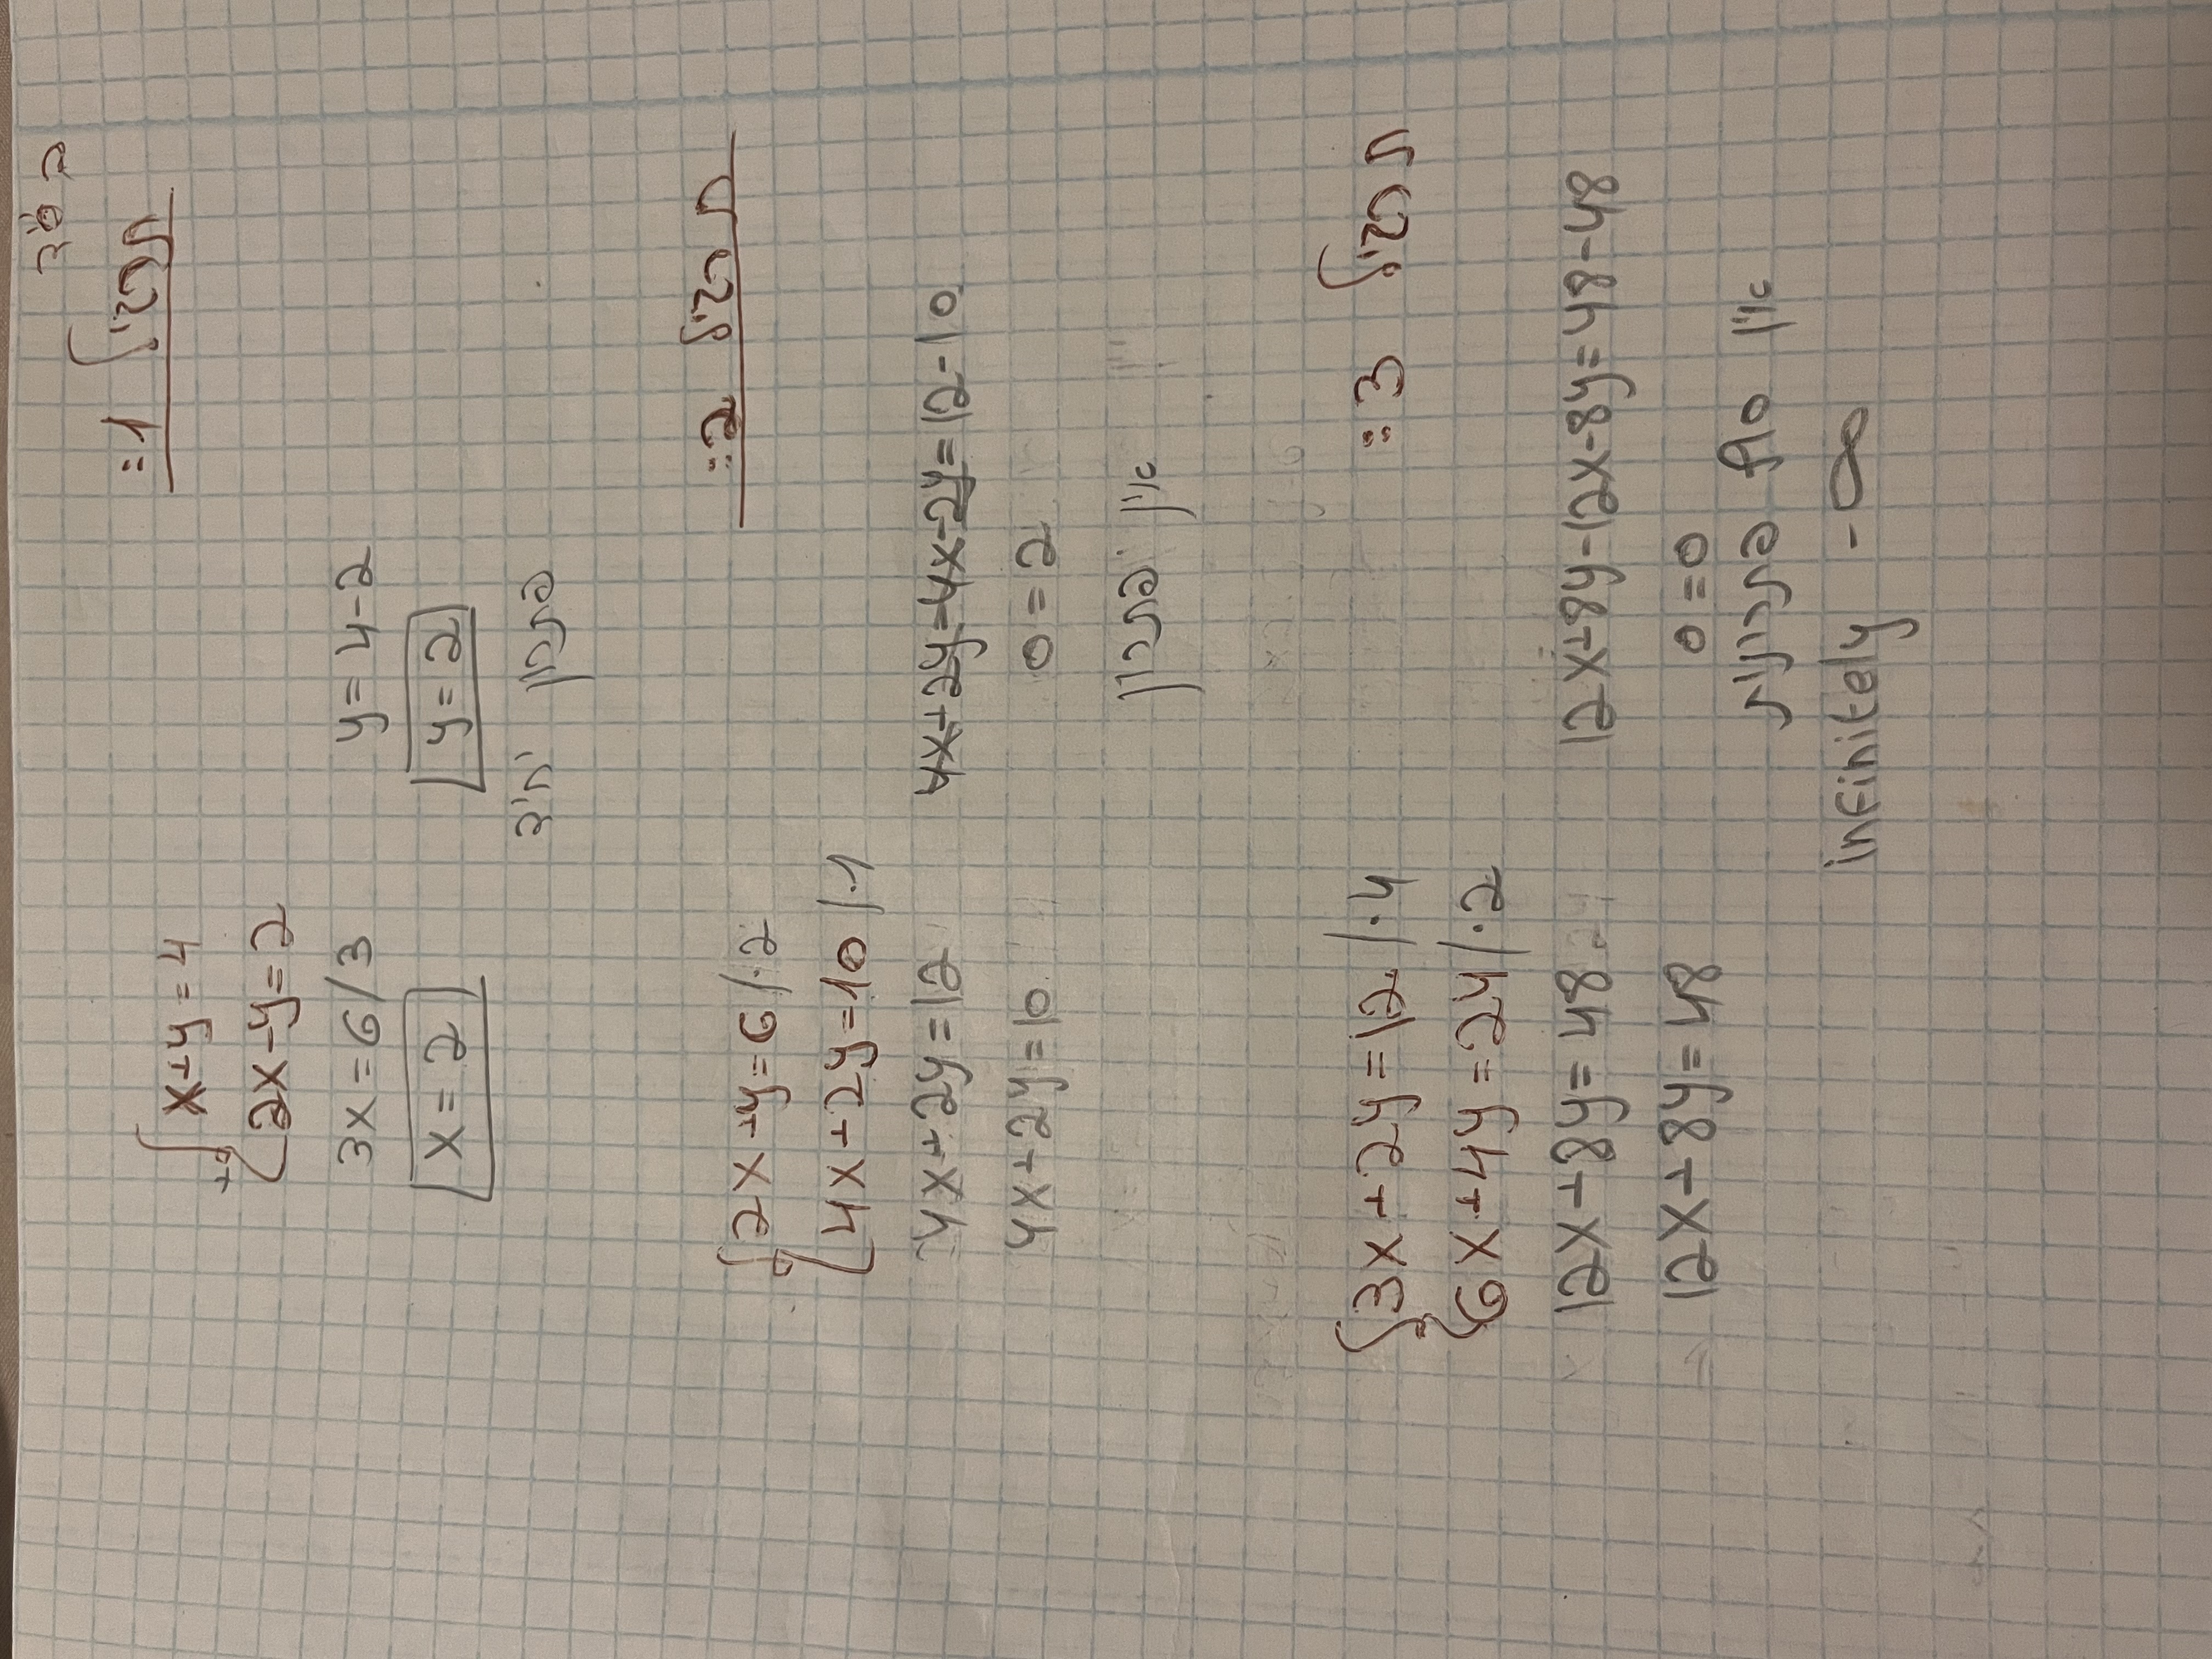 בס"ד
תרגיל 1:
x+y=4
+
2x-y=2
3x=6/3 y=4-2
x=2 y=2
פתרון יחיד
תרגיל 2:
2x+y=6/·2
4x+2y=10/·1
4x+2y=12 4x+2y-4x-2y=12-10
4x+2y=10 0=2
אין פתרון
תרגיל 3:
3x+2y=12/·4
6x+4y=24/·2
12x+8y=48 12x+8y-12x-8y=48-48
12x+8y=48 0=0
אין סוף פתרונות
infinitely -∞